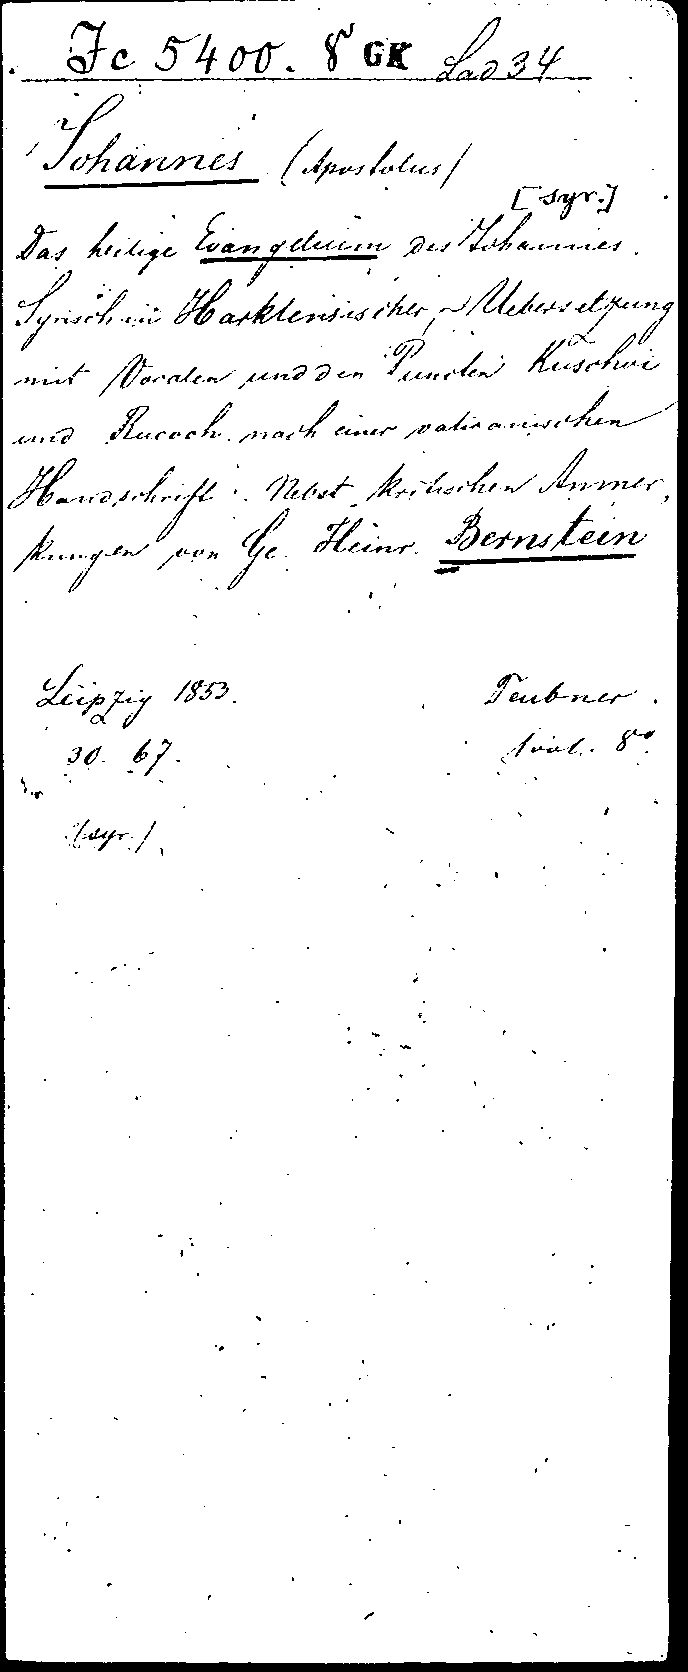 Jc 5400. 8° GK Lad 34
Johannes (Apostolus)
[syr.]
Das heilige Evangelium des Johannes.
Syrisch in Harklensischer Uebersetzung
mit Vocalen und den Puncten Kuschoi
und Rucoch nach einer vaticanischen
Handschrift. Nebst kritischen Anmer-
kungen von Ge. Heinr. Bernstein
Leipzig 1853. Teubner.
30. 67. 1 vol. 8°
(syr.)